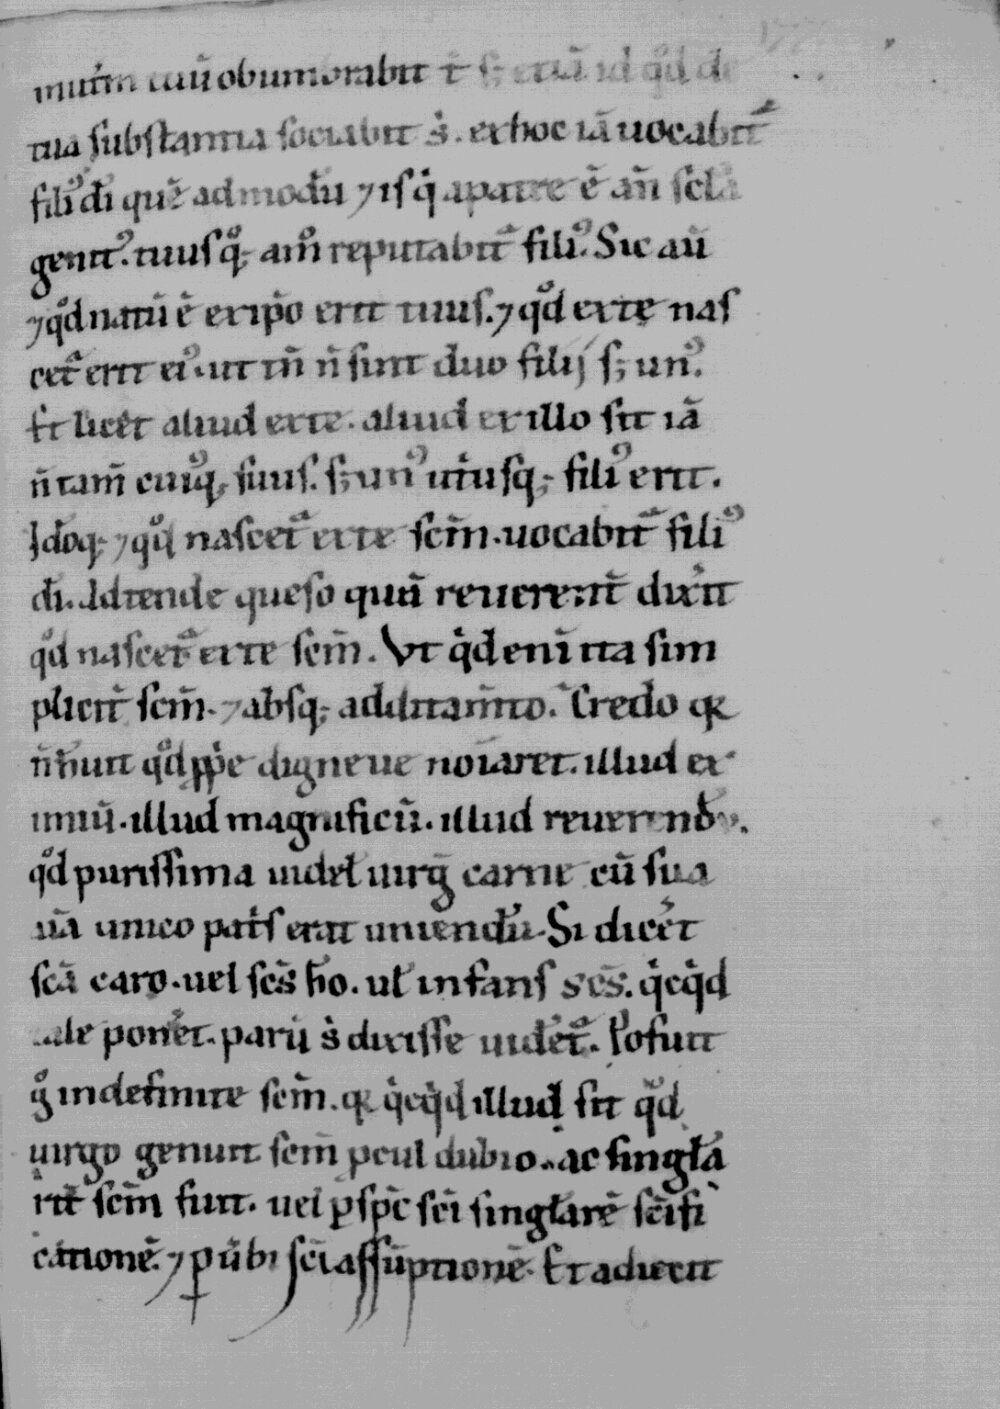 mutr̄m tuū obumbrabit t̄ s; etiā id qd̊ de
tua substantia sociabit s̓. ex hoc iā uocabit᷑
filiꝰ dī quē admodū ⁊ is q̓ a patre ē an̄ sclā
genitꝰ. tuus qͦq; am̊ reputabit᷑ filiꝰ. Sic aū
⁊ qd̊ natū ē ex ip̄o erit tuus. ⁊ qd̊ ex te nas
cet᷑ erit eiꝰ. ut tn̄ n̄ sint duo filij s; unꝰ.
Et licet aliud ex te. aliud ex illo sit iā
n̄ tam̄ cuiꝰq; suus. s; unꝰ utriusq; filiꝰ erit.
Idoq; ⁊ qd̊ nascet᷑ ex te scm̄. uocabit᷑ filiꝰ
dī. Adtende queso quā reuerent̄ dixit
qd̊ nascet᷑ ex te scm̄. Ut q̓d eni ita sim
plicit̄ scm̄. ⁊ absq; additam̄to. Credo qꝛ
n̄ habuit qd̊ pp̓e digne ue noīaret. illud ex
imiū. illud magnificū. illud reuerendū.
qd̊ purissima uidel; uirḡ carne cū sua
uā unico patis erat uniendū. Si dicet
scā caro. uel scs̄ hō. ul̄ infans scs̄. q̓cq̓d
tale ponet. parū s̓ dixisse uidet᷑. Posuit
g̊ indefinite scm̄. qꝛ q̓cq̓d illud sit qd̊
uirgo genuit scm̄ ꝓcul dubio. ac singl̄a
rit̄ scm̄ fuit. uel ꝑ spc̄ scī singl̄arē scīfi
cationē. ⁊ ꝑ ūbi scī assūptionē. Et adiecit